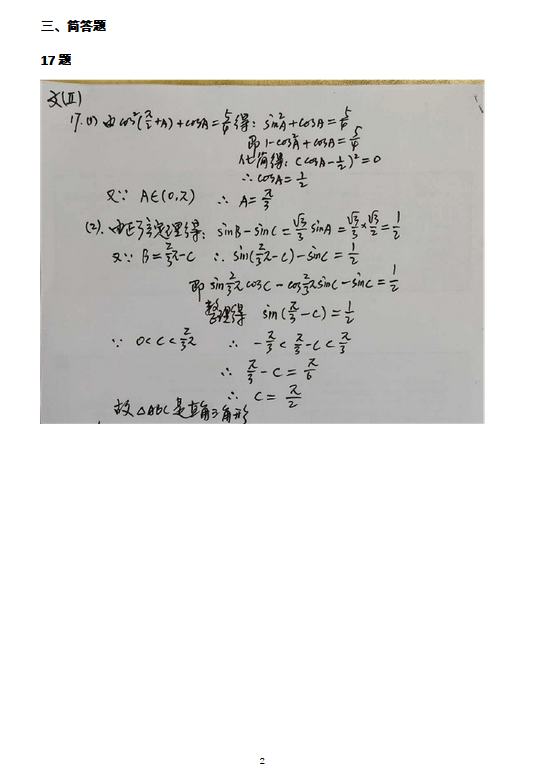 三、简答题
17题
文(Ⅱ)
17.(1) 由cos²(π/2+A)+cosA=5/4得: sin²A+cosA=5/4
即1-cos²A+cosA=5/4
化简得: (cosA-1/2)²=0
∴cosA=1/2
又∵ A∈(0,π) ∴ A=π/3
(2). 由正弦定理得: sinB-sinC=√3/3 sinA=√3/3×√3/2=1/2
又∵ B=2/3π-C ∴ sin(2/3π-C)-sinC=1/2
即 sin2/3π cosC-cos2/3π sinC-sinC=1/2
整理得 sin(π/3-C)=1/2
∵ 0<C<2/3π ∴ -π/3<π/3-C<π/3
∴ π/3-C=π/6
∴ C=π/2
故△ABC是直角三角形
2